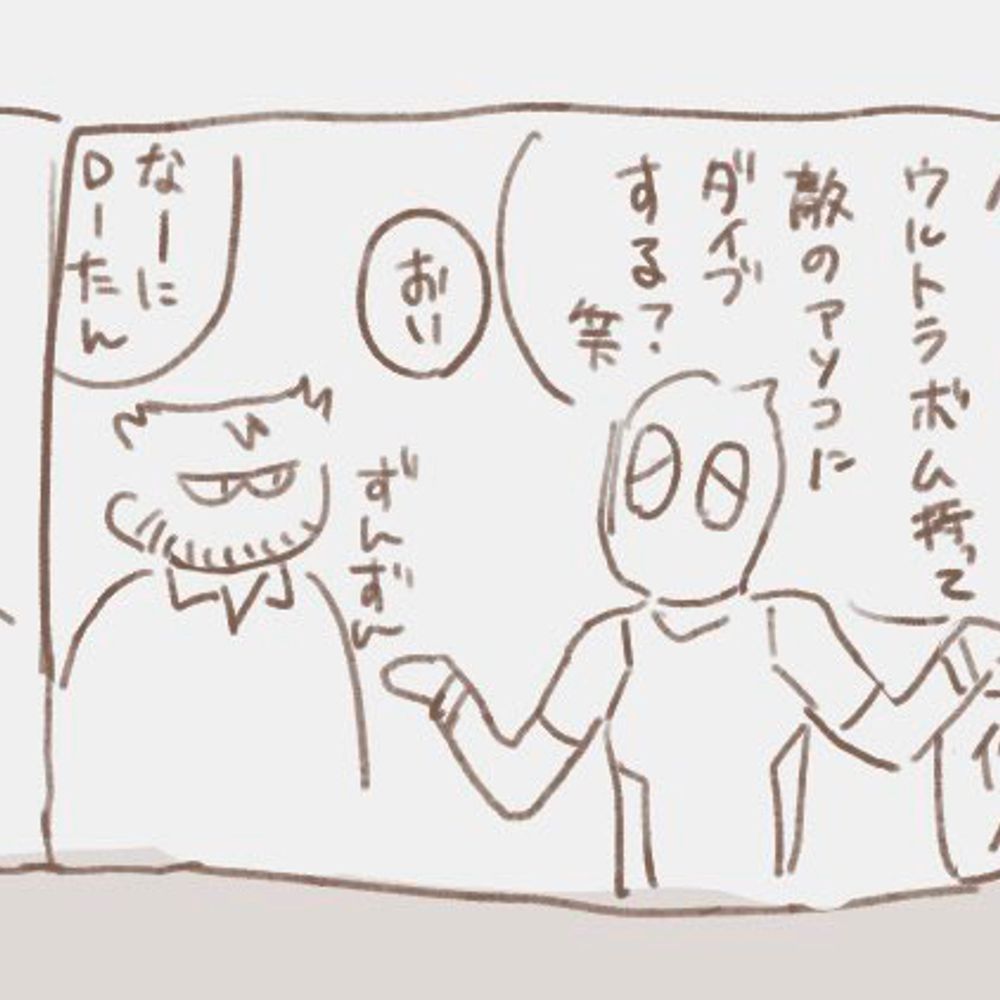 ウルトラボム持って
敵のアソコに
ダイブ
する?
笑
おい
ずんずん
なーに
Dーたん